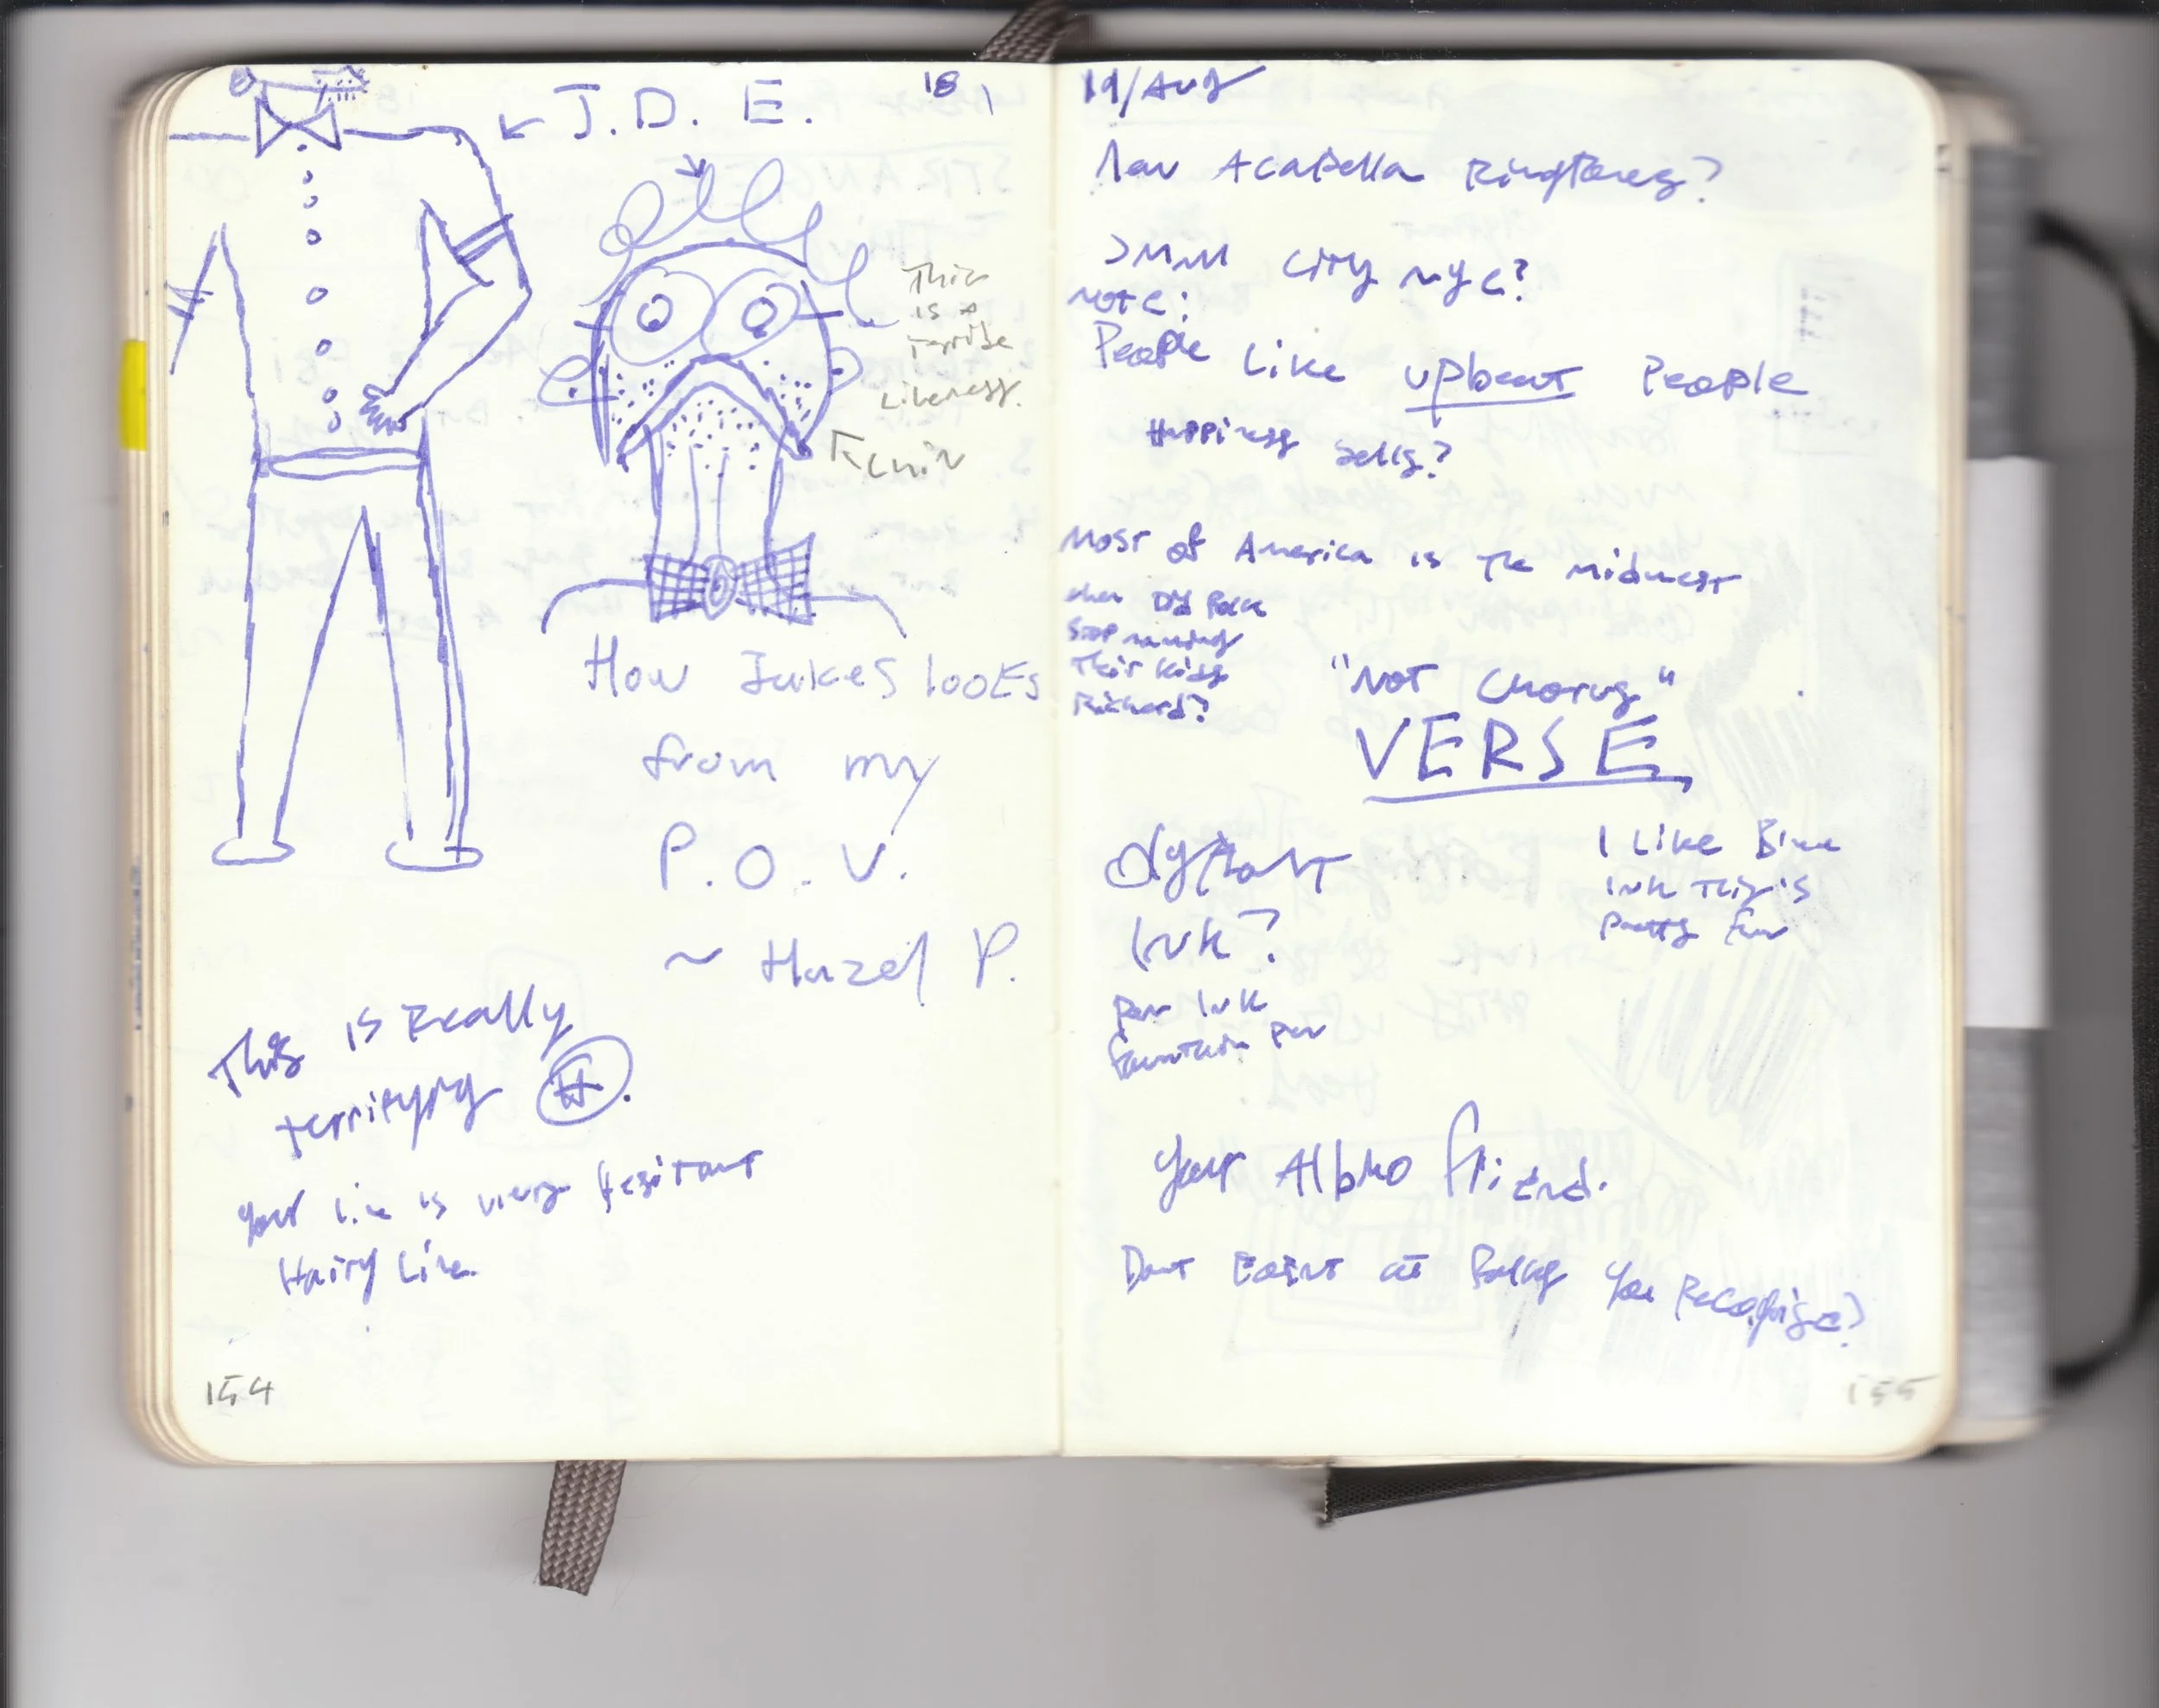 J. D. E.
18
This
is a
terrible
Likeness.
chin
How Jukes looks
from my
P. O. V.
~ Hazel P.
This is Really
terrifypg H.
your line is very Hesitant
Hairy Line
154
19/Aug
New Acapella Ringtones?
City NYC?
Note:
People Like upbeat People
Happiness Sells?
Most of America is The midwest
when Did People
Stop naming
Their Kids
Richard?
"Not Chorus"
VERSE
Ink?
Pen Ink
fountain Pen
I Like Blue
Ink This's
Pretty Fun
Your Albino friend.
Dont Point at People You Recognise?
155